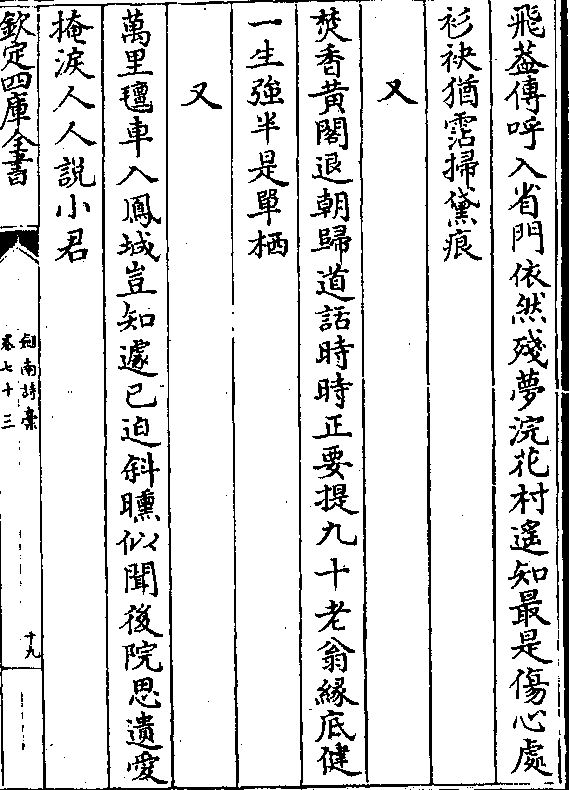 飛葢傳呼入省門依然殘夢浣花村遙知最是傷心處
衫袂猶霑掃黛痕
又
焚香黄閣退朝歸道話時時正要提九十老翁縁底健
一生強半是單栖
又
萬里氊車入鳳城豈知遽已迫斜曛似聞後院思遺愛
掩淚人人説小君
欽定四庫全書
劍南詩藁
卷七十三
十九